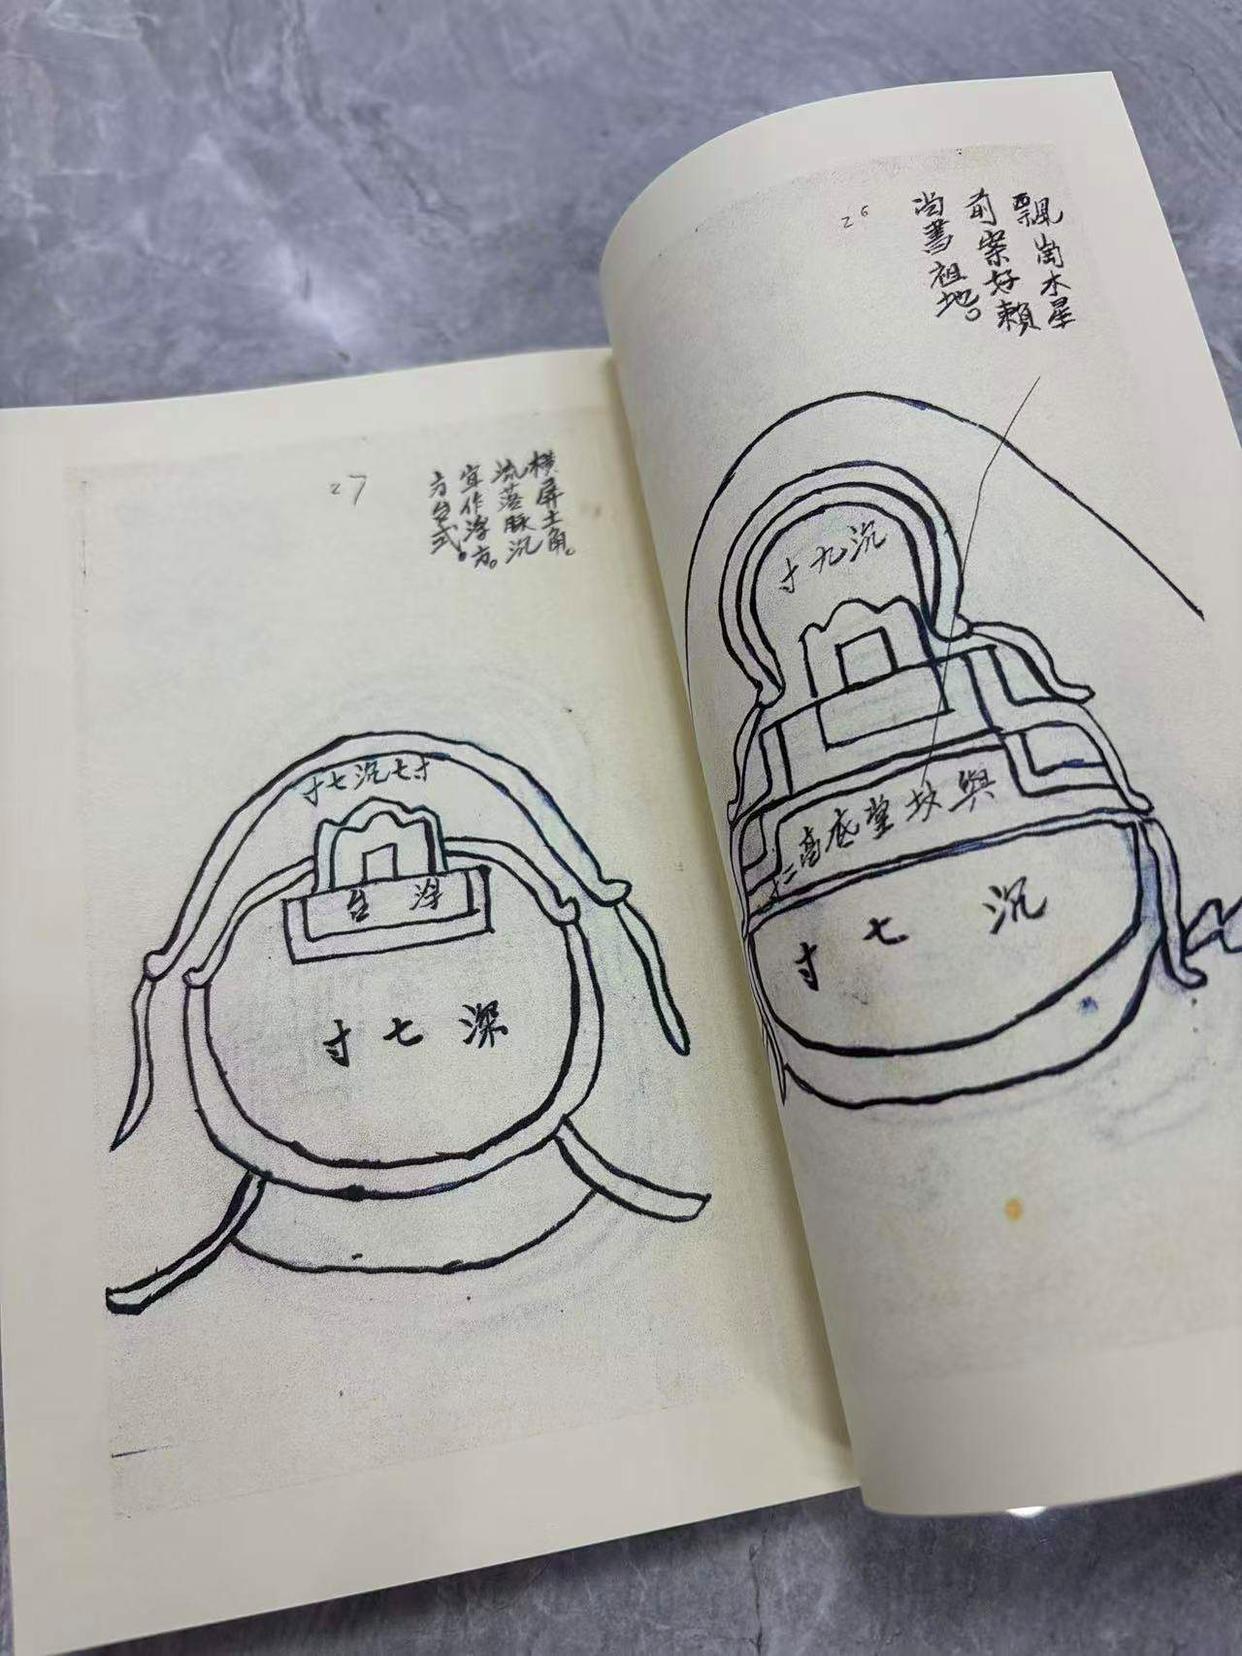 26
飄崗水星
前案好賴
尚書祖地。
沉九寸
與坟堂底高
二寸
沉七寸
27
横屏土角。
流落脉沉
宜作浮方。
方台式。
寸七沉七寸
浮台
深七寸